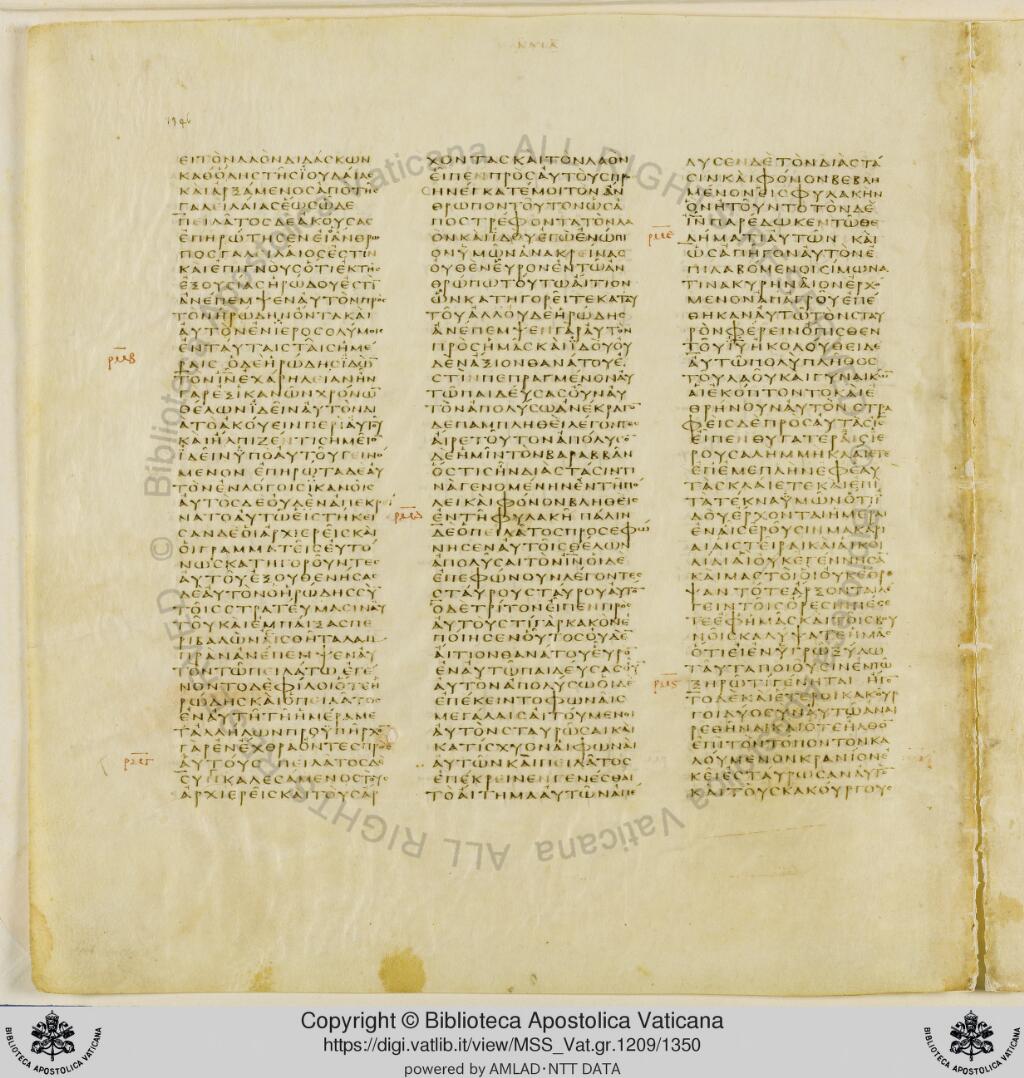 1346
ΕΙΤΟΝΛΑΟΝΔΙΔΑΣΚΩΝ
ΚΑΘΟΛΗΣΤΗΣΙΟΥΔΑΙΑΣ
ΚΑΙΑΡΞΑΜΕΝΟΣΑΠΟΤΗΣ
ΓΑΛΕΙΛΑΙΑΣΕΩΣΩΔΕ
ΠΕΙΛΑΤΟΣΔΕΑΚΟΥΣΑΣ
ΕΠΗΡΩΤΗΣΕΝΕΙΑΝΘΡΩ
ΠΟΣΓΑΛΙΛΑΙΟΣΕΣΤΙΝ
ΚΑΙΕΠΙΓΝΟΥΣΟΤΙΕΚΤΗΣ
ΕΞΟΥΣΙΑΣΗΡΩΔΟΥΕΣΤΙ
ΑΝΕΠΕΜΨΕΝΑΥΤΟΝΠΡΟΣ
ΤΟΝΗΡΩΔΗΝΟΝΤΑΚΑΙ
ΑΥΤΟΝΕΝΙΕΡΟΣΟΛΥΜΟΙΣ
ΕΝΤΑΥΤΑΙΣΤΑΙΣΗΜΕ
ΡΑΙΣ ΟΔΕΗΡΩΔΗΣΙΔΩΝ
ΤΟΝΙ̅Ν̅ΕΧΑΡΗΛΕΙΑΝΗΝ
ΓΑΡΕΞΙΚΑΝΩΝΧΡΟΝΩΝ
ΘΕΛΩΝΙΔΕΙΝΑΥΤΟΝΔΙ
ΑΤΟΑΚΟΥΕΙΝΠΕΡΙΑΥΤΟΥ
ΚΑΙΗΛΠΙΖΕΝΤΙΣΗΜΕΙΟΝ
ΙΔΕΙΝΥΠΑΥΤΟΥΓΕΙΝΟ
ΜΕΝΟΝ ΕΠΗΡΩΤΑΔΕΑΥ
ΤΟΝΕΝΛΟΓΟΙΣΙΚΑΝΟΙΣ
ΑΥΤΟΣΔΕΟΥΔΕΝΑΠΕΚΡΙ
ΝΑΤΟΑΥΤΩΕΙΣΤΗΚΕΙ
ΣΑΝΔΕΟΙΑΡΧΙΕΡΕΙΣΚΑΙ
ΟΙΓΡΑΜΜΑΤΕΙΣΕΥΤΟ
ΝΩΣΚΑΤΗΓΟΡΟΥΝΤΕΣ
ΑΥΤΟΥΕΞΟΥΘΕΝΗΣΑΣ
ΔΕΑΥΤΟΝΟΗΡΩΔΗΣΣΥ
ΤΟΙΣΣΤΡΑΤΕΥΜΑΣΙΝΑΥ
ΤΟΥΚΑΙΕΜΠΑΙΞΑΣΠΕ
ΡΙΒΑΛΩΝΕΣΘΗΤΑΛΑΜ
ΠΡΑΝΑΝΕΠΕΜΨΕΝΑΥ
ΤΟΝΤΩΠΕΙΛΑΤΩ ΕΓΕ
ΝΟΝΤΟΔΕΦΙΛΟΙΟΤΕΗ
ΡΩΔΗΣΚΑΙΟΠΕΙΛΑΤΟΣ
ΕΝΑΥΤΗΤΗΗΜΕΡΑΜΕ
ΤΑΛΛΗΛΩΝΠΡΟΥΠΗΡΧΟ
ΓΑΡΕΝΕΧΘΡΑΟΝΤΕΣΠΡΟΣ
ΑΥΤΟΥΣ ΠΕΙΛΑΤΟΣΔΕ
ΣΥΝΚΑΛΕΣΑΜΕΝΟΣΤΟΥΣ
ΑΡΧΙΕΡΕΙΣΚΑΙΤΟΥΣΑΡ
ΧΟΝΤΑΣΚΑΙΤΟΝΛΑΟΝ
ΕΙΠΕΝΠΡΟΣΑΥΤΟΥΣΠΡ
ΗΝΕΓΚΑΤΕΜΟΙΤΟΝΑΝ
ΘΡΩΠΟΝΤΟΥΤΟΝΩΣΑ
ΠΟΣΤΡΕΦΟΝΤΑΤΟΝΛΑ
ΟΝΚΑΙΙΔΟΥΕΓΩΕΝΩΠΙ
ΟΝΥΜΩΝΑΝΑΚΡΕΙΝΑΣ
ΟΥΘΕΝΕΥΡΟΝΕΝΤΩΑΝ
ΘΡΩΠΩΤΟΥΤΩΑΙΤΙΟΝ
ΩΝΚΑΤΗΓΟΡΕΙΤΕΚΑΤΑΥ
ΤΟΥΑΛΛΟΥΔΕΗΡΩΔΗΣ
ΑΝΕΠΕΜΨΕΝΓΑΡΑΥΤΟΝ
ΠΡΟΣΗΜΑΣΚΑΙΙΔΟΥΟΥ
ΔΕΝΑΞΙΟΝΘΑΝΑΤΟΥΕ
ΣΤΙΝΠΕΠΡΑΓΜΕΝΟΝΑΥ
ΤΩΠΑΙΔΕΥΣΑΣΟΥΝΑΥ
ΤΟΝΑΠΟΛΥΣΩΑΝΕΚΡΑΓΟ
ΔΕΠΑΜΠΛΗΘΕΙΛΕΓΟΝΤΕΣ
ΑΙΡΕΤΟΥΤΟΝΑΠΟΛΥΣΟ
ΔΕΗΜΙΝΤΟΝΒΑΡΑΒΒΑΝ
ΟΣΤΙΣΗΝΔΙΑΣΤΑΣΙΝΤΙ
ΝΑΓΕΝΟΜΕΝΗΝΕΝΤΗΠΟ
ΛΕΙΚΑΙΦΟΝΟΝΒΛΗΘΕΙΣ
ΕΝΤΗΦΥΛΑΚΗ ΠΑΛΙΝ
ΔΕΟΠΕΙΛΑΤΟΣΠΡΟΣΕΦΩ
ΝΗΣΕΝΑΥΤΟΙΣΘΕΛΩΝ
ΑΠΟΛΥΣΑΙΤΟΝΙ̅Ν̅ΟΙΔΕ
ΕΠΕΦΩΝΟΥΝΛΕΓΟΝΤΕΣ
ΣΤΑΥΡΟΥΣΤΑΥΡΟΥΑΥΤΟ
ΟΔΕΤΡΙΤΟΝΕΙΠΕΝΠΡΟΣ
ΑΥΤΟΥΣΤΙΓΑΡΚΑΚΟΝΕ
ΠΟΙΗΣΕΝΟΥΤΟΣΟΥΔΕ
ΑΙΤΙΟΝΘΑΝΑΤΟΥΕΥΡΟ
ΕΝΑΥΤΩΠΑΙΔΕΥΣΑΣΟΥ
ΑΥΤΟΝΑΠΟΛΥΣΩΟΙΔΕ
ΕΠΕΚΕΙΝΤΟΦΩΝΑΙΣ
ΜΕΓΑΛΑΙΣΑΙΤΟΥΜΕΝΟΙ
ΑΥΤΟΝΣΤΑΥΡΩΣΑΙΚΑΙ
ΚΑΤΙΣΧΥΟΝΑΙΦΩΝΑΙ
ΑΥΤΩΝΚΑΙΠΕΙΛΑΤΟΣ
ΕΠΕΚΡΕΙΝΕΝΓΕΝΕΣΘΑΙ
ΤΟΑΙΤΗΜΑΑΥΤΩΝΑΠΕ
ΛΥΣΕΝΔΕΤΟΝΔΙΑΣΤΑ
ΣΙΝΚΑΙΦΟΝΟΝΒΕΒΛΗ
ΜΕΝΟΝΕΙΣΦΥΛΑΚΗΝ
ΟΝΗΤΟΥΝΤΟΤΟΝΔΕ
Ι̅Ν̅ΠΑΡΕΔΩΚΕΝΤΩΘΕ
ΛΗΜΑΤΙΑΥΤΩΝ ΚΑΙ
ΩΣΑΠΗΓΟΝΑΥΤΟΝΕ
ΠΙΛΑΒΟΜΕΝΟΙΣΙΜΩΝΑ
ΤΙΝΑΚΥΡΗΝΑΙΟΝΕΡΧΟ
ΜΕΝΟΝΑΠΑΓΡΟΥΕΠΕ
ΘΗΚΑΝΑΥΤΩΤΟΝΣΤΑΥ
ΡΟΝΦΕΡΕΙΝΟΠΙΣΘΕΝ
ΤΟΥΙ̅Υ̅ΗΚΟΛΟΥΘΕΙΔΕ
ΑΥΤΩΠΟΛΥΠΛΗΘΟΣ
ΤΟΥΛΑΟΥΚΑΙΓΥΝΑΙΚΩΝ
ΑΙΕΚΟΠΤΟΝΤΟΚΑΙΕ
ΘΡΗΝΟΥΝΑΥΤΟΝ ΣΤΡΑ
ΦΕΙΣΔΕΠΡΟΣΑΥΤΑΣΙΣ
ΕΙΠΕΝΘΥΓΑΤΕΡΕΣΙΕ
ΡΟΥΣΑΛΗΜΜΗΚΛΑΙΕΤΕ
ΕΠΕΜΕΠΛΗΝΕΦΕΑΥ
ΤΑΣΚΛΑΙΕΤΕΚΑΙΕΠΙ
ΤΑΤΕΚΝΑΥΜΩΝΟΤΙ
ΔΟΥΕΡΧΟΝΤΑΙΗΜΕΡΑΙ
ΕΝΑΙΣΕΡΟΥΣΙΝΜΑΚΑΡΙ
ΑΙΑΙΣΤΕΙΡΑΙΚΑΙΑΙΚΟΙ
ΛΙΑΙΑΙΟΥΚΕΓΕΝΝΗΣΑ
ΚΑΙΜΑΣΤΟΙΟΙΟΥΚΕΘΡΕ
ΨΑΝ ΤΟΤΕΑΡΞΟΝΤΑΙΛΕ
ΓΕΙΝΤΟΙΣΟΡΕΣΙΝΠΕΣΕ
ΤΕΕΦΗΜΑΣΚΑΙΤΟΙΣΒΟΥ
ΝΟΙΣΚΑΛΥΨΑΤΕΗΜΑΣ
ΟΤΙΕΙΕΝΥΓΡΩΞΥΛΩ
ΤΑΥΤΑΠΟΙΟΥΣΙΝΕΝΤΩ
ΞΗΡΩΤΙΓΕΝΗΤΑΙ ΗΓΟ
ΤΟΔΕΚΑΙΕΤΕΡΟΙΚΑΚΟΥΡ
ΓΟΙΔΥΟΣΥΝΑΥΤΩΑΝΑΙ
ΡΕΘΗΝΑΙΚΑΙΟΤΕΗΛΘΟ
ΕΠΙΤΟΝΤΟΠΟΝΤΟΝΚΑ
ΛΟΥΜΕΝΟΝΚΡΑΝΙΟΝΕ
ΚΕΙΕΣΤΑΥΡΩΣΑΝΑΥΤΟ
ΚΑΙΤΟΥΣΚΑΚΟΥΡΓΟΥΣ
Copyright © Biblioteca Apostolica Vaticana
https://digi.vatlib.it/view/MSS_Vat.gr.1209/1350
powered by AMLAD·NTT DATA
BIBLIOTECA APOSTOLICA VATICANA
BIBLIOTECA APOSTOLICA VATICANA